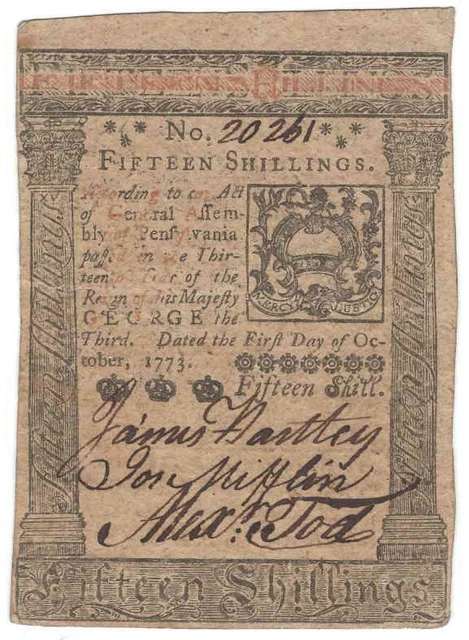 FIFTEEN SHILLINGS
No. 20261
FIFTEEN SHILLINGS.
According to an Act
of General Assem-
bly of Pensylvania
passed in the Thir-
teenth Year of the
Reign of his Majesty
GEORGE the
Third. Dated the First Day of Oc-
tober, 1773.
MERCY JUSTICE
Fifteen Shill.
James Hartley
Jos. Mifflin
Alexr. Tod
Fifteen Shillings
Fifteen Shillings
Fifteen Shillings